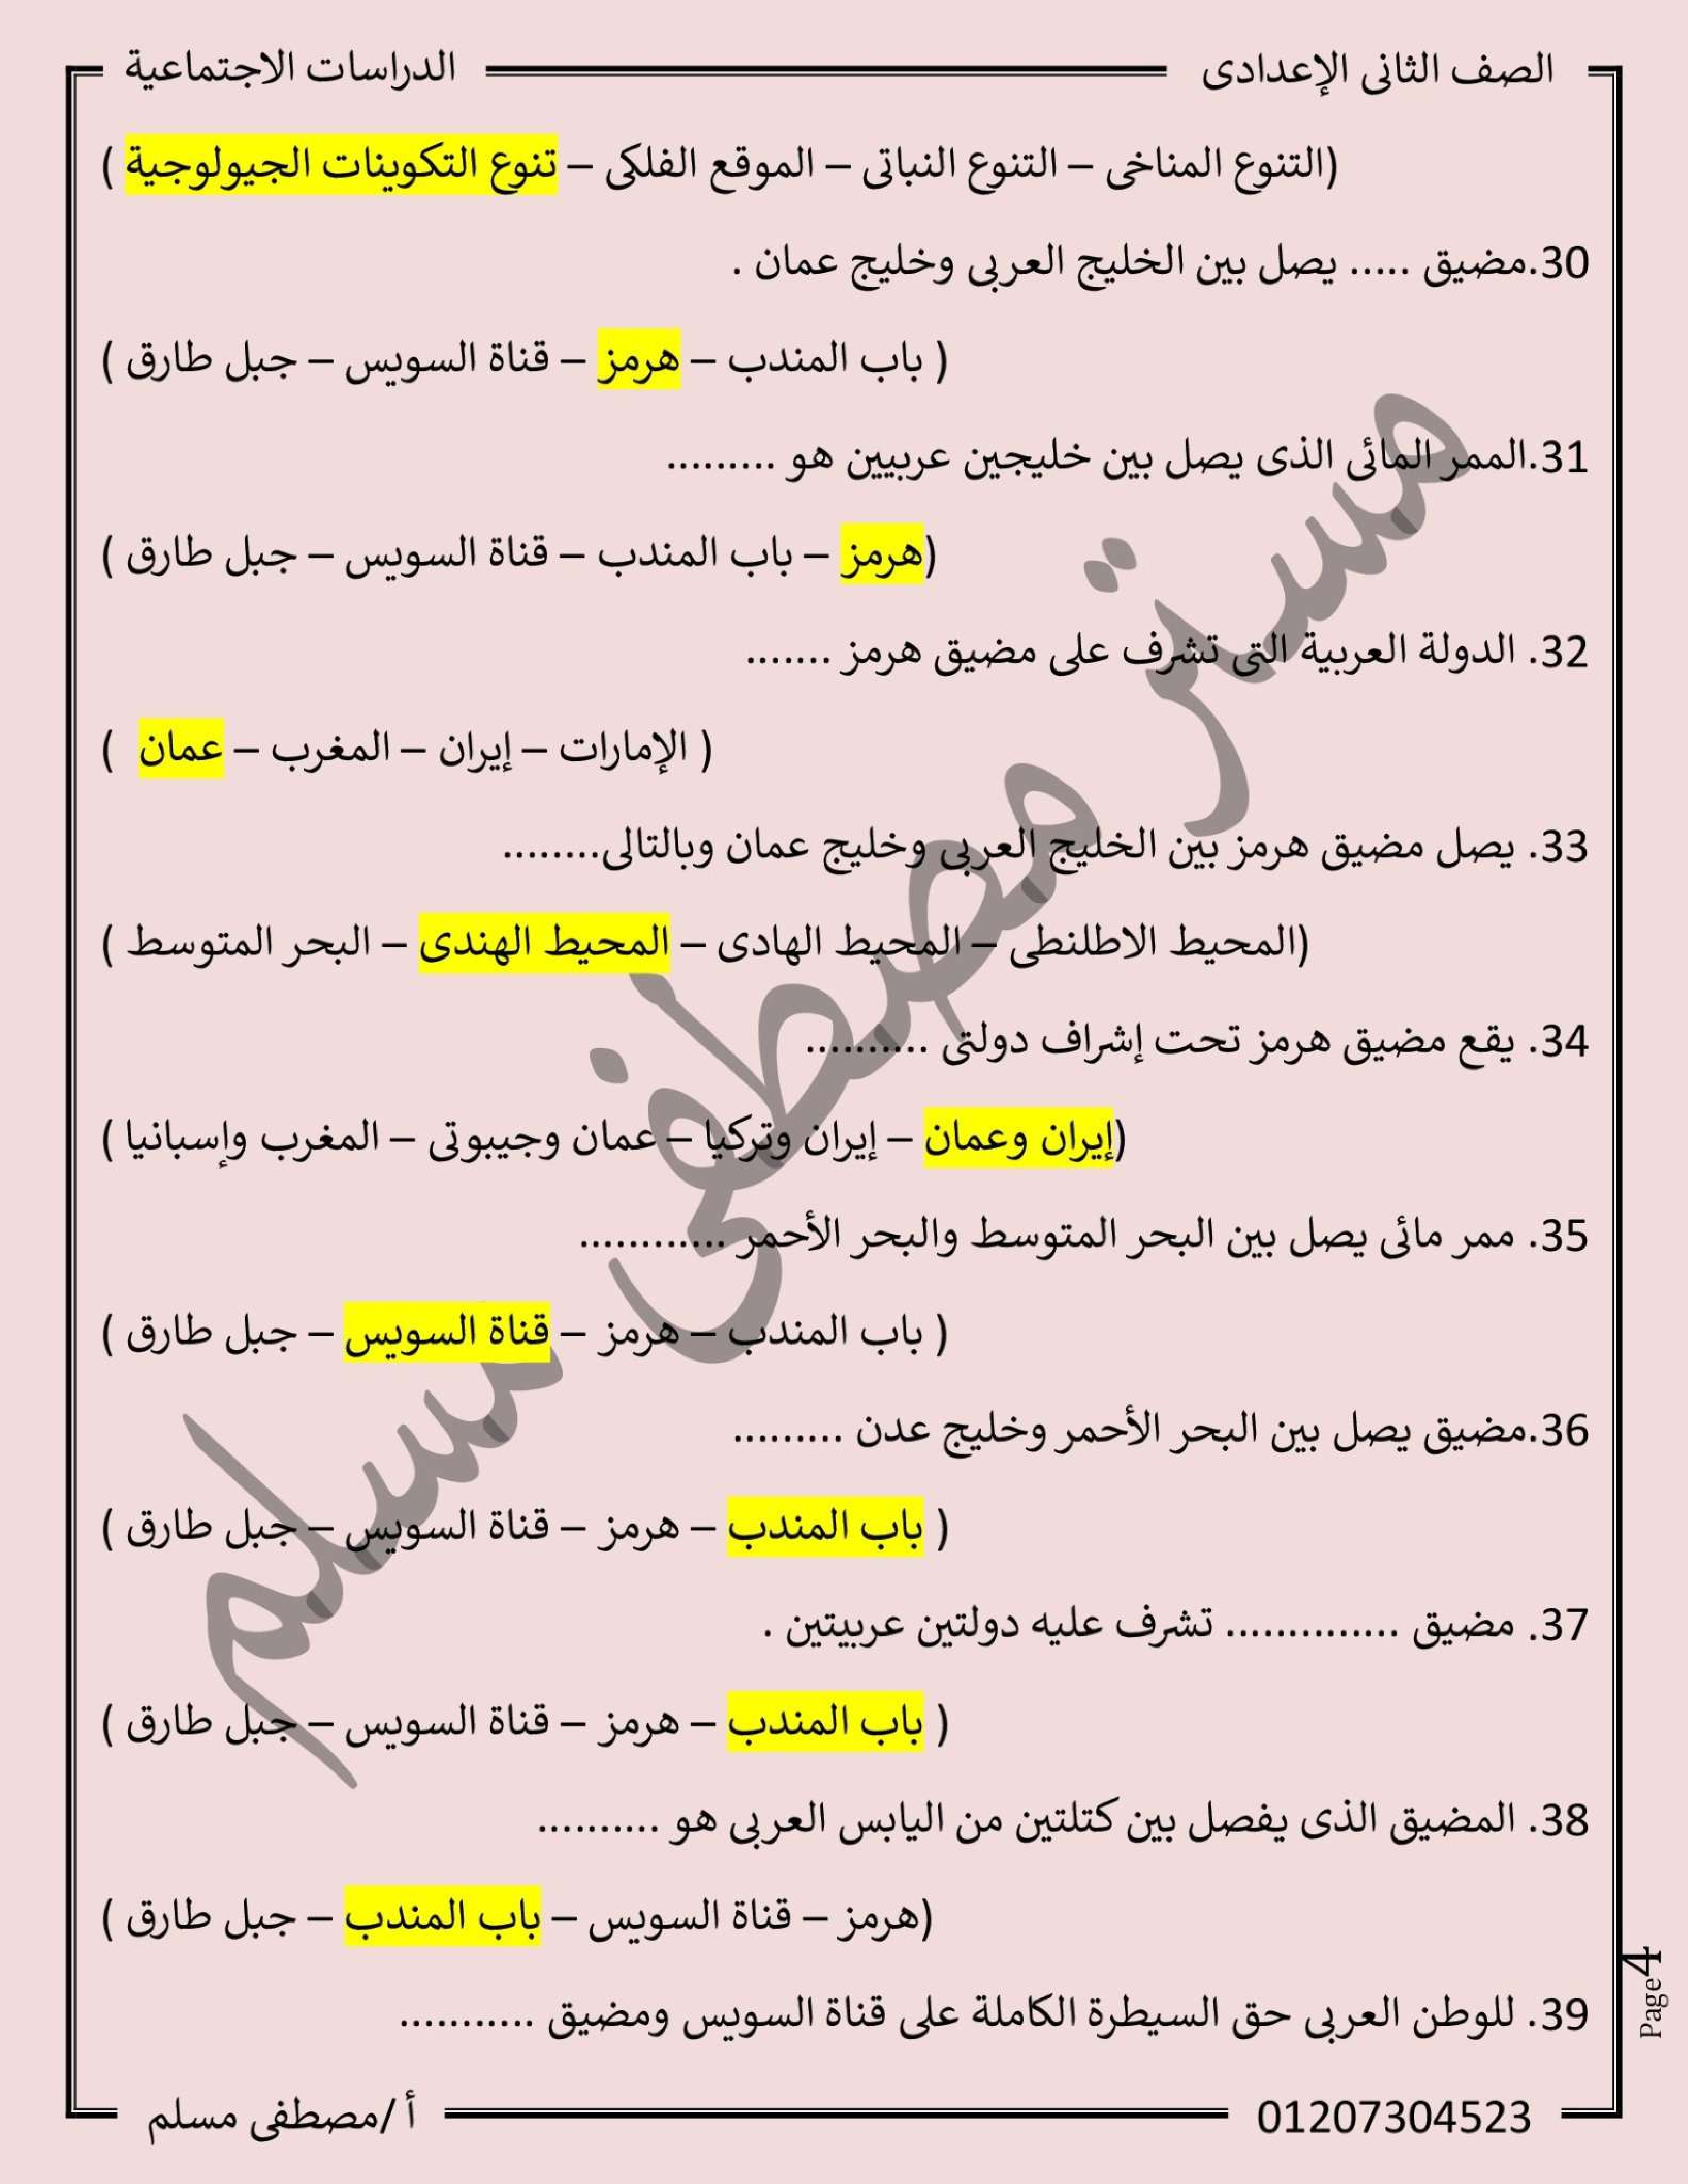 الصف الثانى الإعدادى الدراسات الاجتماعية
(التنوع المناخى – التنوع النباتى – الموقع الفلكى – تنوع التكوينات الجيولوجية )
30.مضيق ..... يصل بين الخليج العربى وخليج عمان .
( باب المندب – هرمز – قناة السويس – جبل طارق )
31.الممر المائى الذى يصل بين خليجين عربيين هو .........
(هرمز – باب المندب – قناة السويس – جبل طارق )
32. الدولة العربية التى تشرف على مضيق هرمز .......
( الإمارات – إيران – المغرب – عمان )
33. يصل مضيق هرمز بين الخليج العربى وخليج عمان وبالتالى........
(المحيط الاطلنطى – المحيط الهادى – المحيط الهندى – البحر المتوسط )
34. يقع مضيق هرمز تحت إشراف دولتى ..........
(إيران وعمان – إيران وتركيا – عمان وجيبوتى – المغرب وإسبانيا )
35. ممر مائى يصل بين البحر المتوسط والبحر الأحمر ............
( باب المندب – هرمز – قناة السويس – جبل طارق )
36.مضيق يصل بين البحر الأحمر وخليج عدن .........
( باب المندب – هرمز – قناة السويس – جبل طارق )
37. مضيق .............. تشرف عليه دولتين عربيتين .
( باب المندب – هرمز – قناة السويس – جبل طارق )
38. المضيق الذى يفصل بين كتلتين من اليابس العربى هو ..........
(هرمز – قناة السويس – باب المندب – جبل طارق )
39. للوطن العربى حق السيطرة الكاملة على قناة السويس ومضيق ...........
Page4
01207304523 أ /مصطفى مسلم
مستر مصطفى مسلم